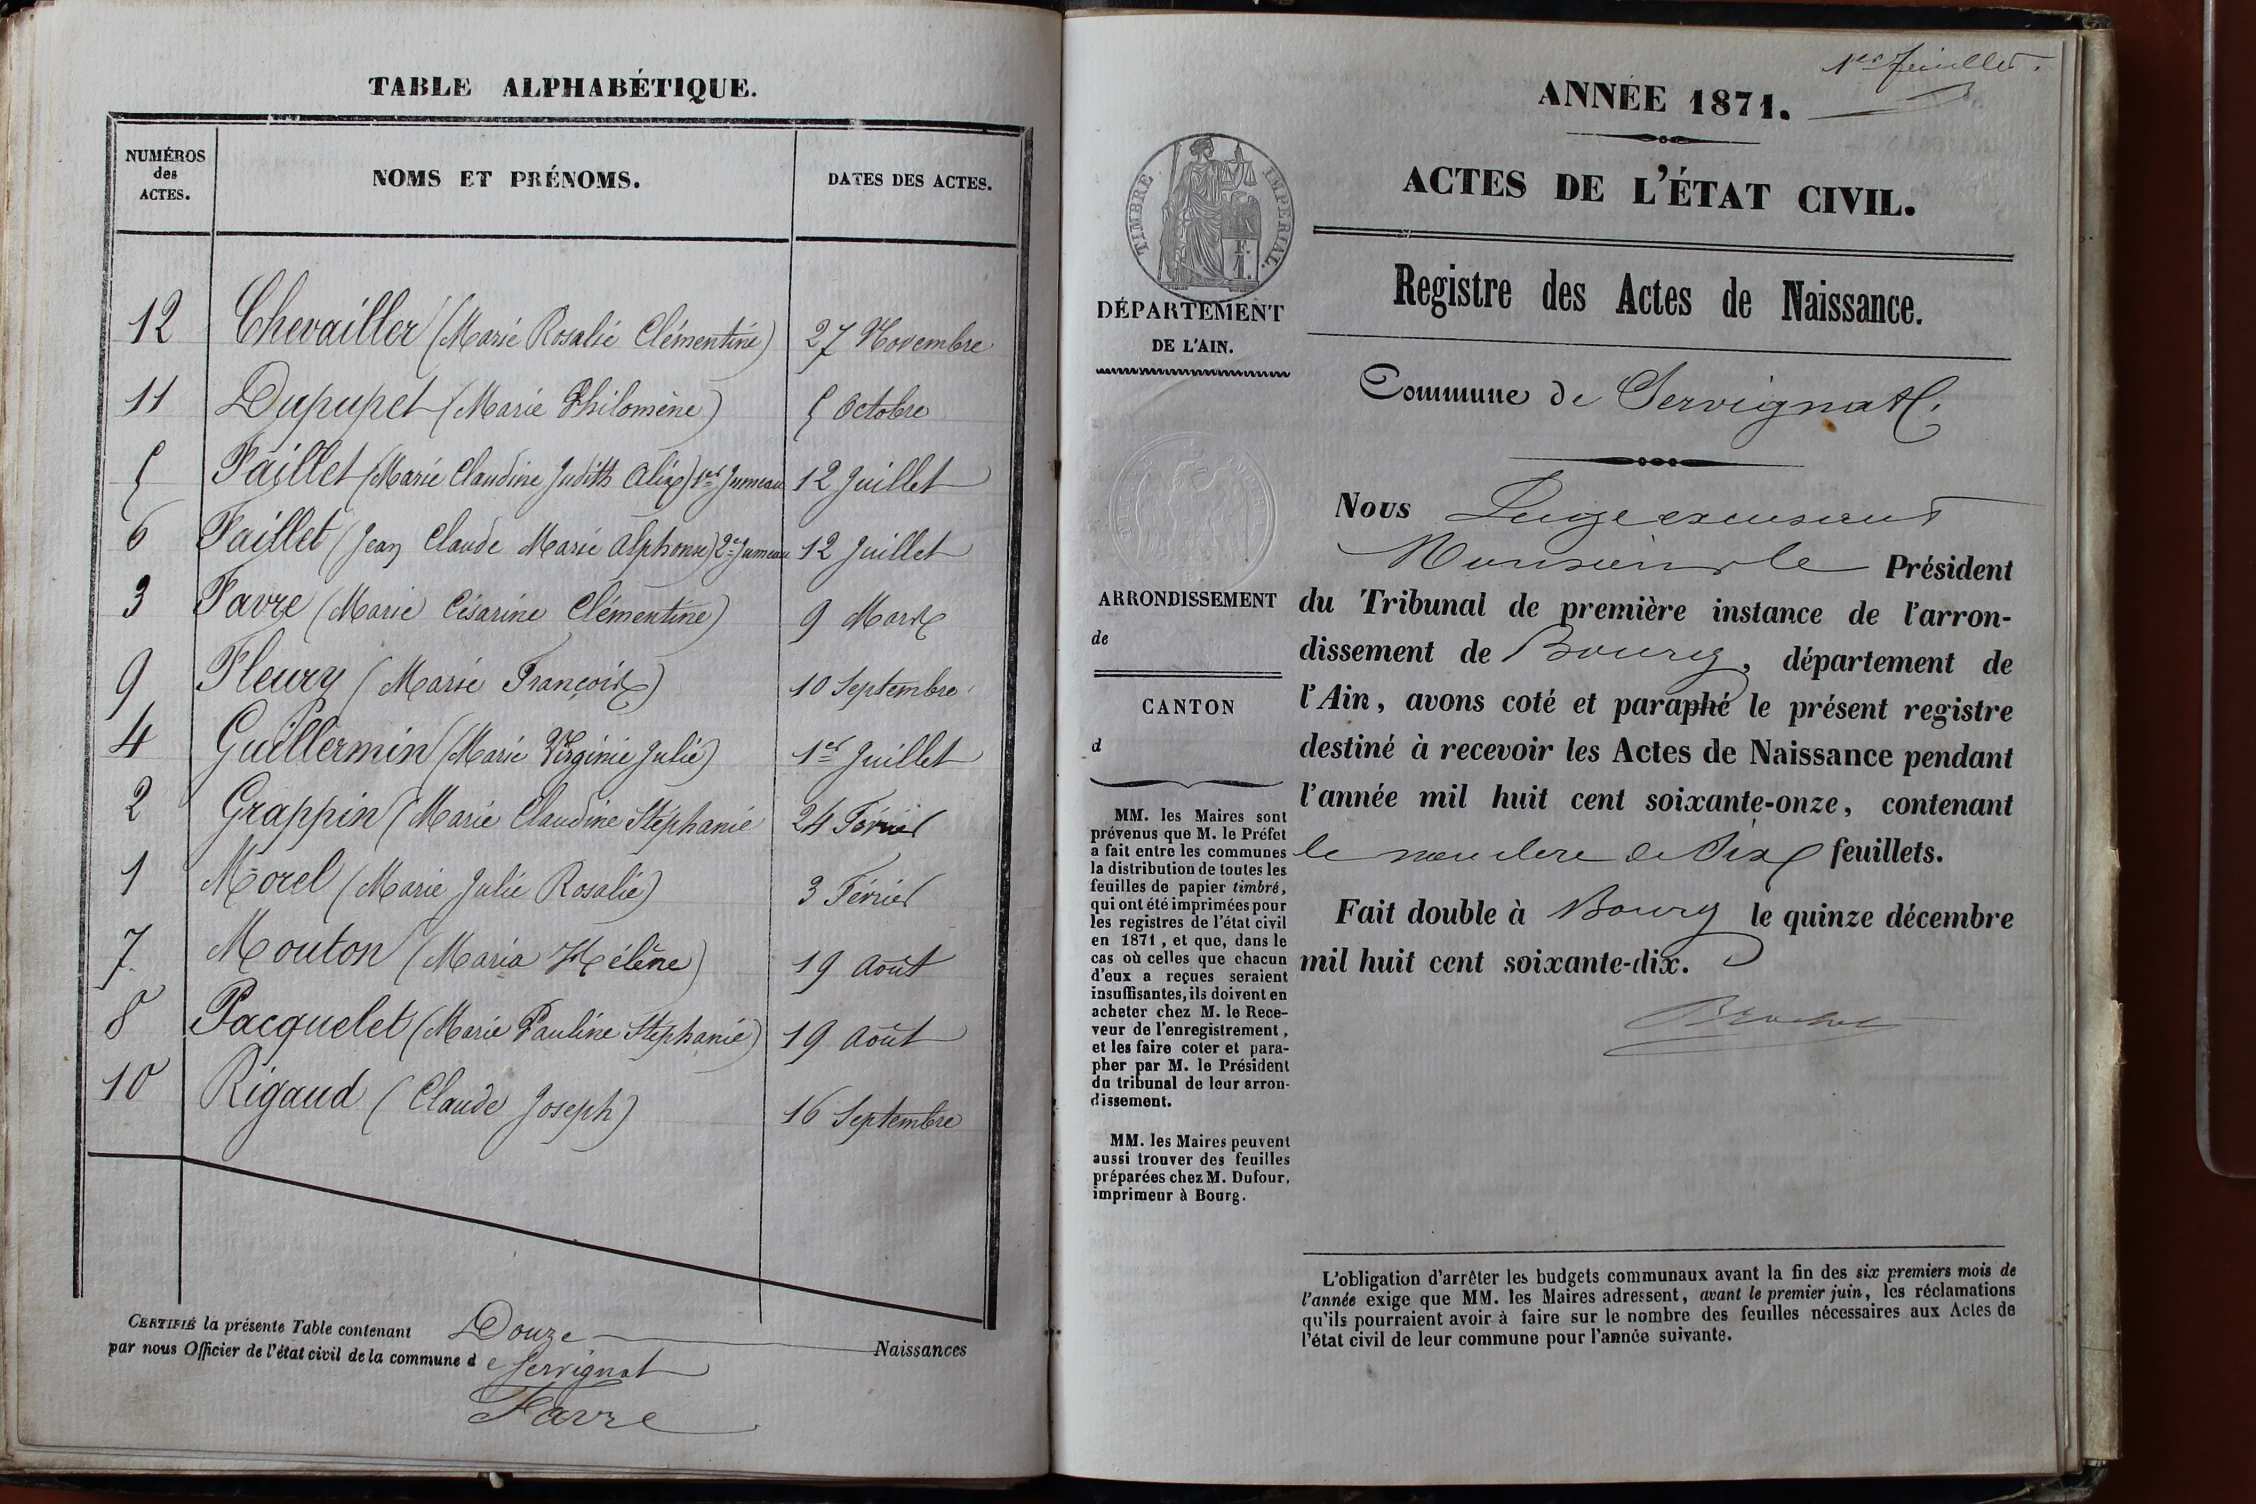 TABLE ALPHABÉTIQUE.
NUMÉROS
des
ACTES.
NOMS ET PRÉNOMS.
DATES DES ACTES.
12 Chevailler (Marie Rosalie Clémentine) 27 Novembre
11 Dupupet (Marie Philomène) 5 Octobre
5 Faillet (Marie Claudine Judith Alix) 1er Jumeau 12 Juillet
6 Faillet (Jean Claude Marie Alphonse) 2e Jumeau 12 Juillet
3 Favre (Marie Césarine Clémentine) 9 Mars
9 Fleury (Marie François) 10 Septembre
4 Guillermin (Marie Virginie Julie) 1er Juillet
2 Grappin (Marie Claudine Stéphanie 24 Février
1 Morel (Marie Julie Rosalie) 3 Février
7 Mouton (Maria Hélène) 19 Août
8 Pacquelet (Marie Pauline Stéphanie) 19 Août
10 Rigaud (Claude Joseph) 16 Septembre
CERTIFIÉ la présente Table contenant Douze Naissances
par nous Officier de l'état civil de la commune de Servignat
Favre
1er feuillet.
ANNÉE 1871.
ACTES DE L'ÉTAT CIVIL.
Registre des Actes de Naissance.
TIMBRE IMPÉRIAL.
DÉPARTEMENT
DE L'AIN.
ARRONDISSEMENT
de
CANTON
d
MM. les Maires sont
prévenus que M. le Préfet
a fait entre les communes
la distribution de toutes les
feuilles de papier timbré,
qui ont été imprimées pour
les registres de l'état civil
en 1871, et que, dans le
cas où celles que chacun
d'eux a reçues seraient
insuffisantes, ils doivent en
acheter chez M. le Rece-
veur de l'enregistrement,
et les faire coter et para-
pher par M. le Président
du tribunal de leur arron-
dissement.
MM. les Maires peuvent
aussi trouver des feuilles
préparées chez M. Dufour,
imprimeur à Bourg.
Commune de Servignat
Nous Juge excusant
Monsieur le Président
du Tribunal de première instance de l'arron-
dissement de Bourg, département de
l'Ain, avons coté et paraphé le présent registre
destiné à recevoir les Actes de Naissance pendant
l'année mil huit cent soixante-onze, contenant
le nombre de Six feuillets.
Fait double à Bourg le quinze décembre
mil huit cent soixante-dix.
L'obligation d'arrêter les budgets communaux avant la fin des six premiers mois de
l'année exige que MM. les Maires adressent, avant le premier juin, les réclamations
qu'ils pourraient avoir à faire sur le nombre des feuilles nécessaires aux Actes de
l'état civil de leur commune pour l'année suivante.